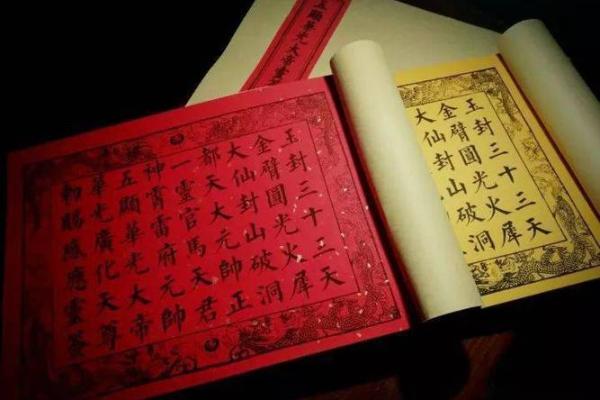 五顯華光大帝靈
玉封三十三天
金臂圓光火犀
大仙封山破洞
玉封三十三天
金臂圓光火犀
大仙封山破洞
都天大元帥正
一靈官馬天君
神霄雷府元帥
五顯華光大帝
華光廣化天尊
勅賜感應靈签